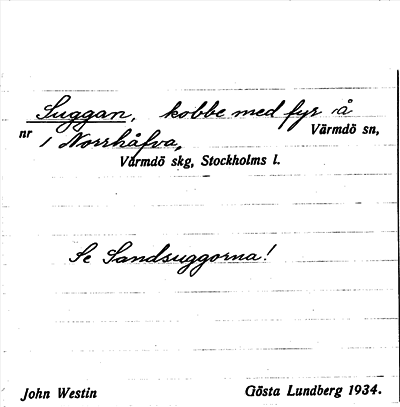 Suggan, kobbe med fyr å
nr 1 Norrhåfva, Värmdö sn,
Värmdö skg, Stockholms l.
Se Sandsuggorna!
John Westin Gösta Lundberg 1934.